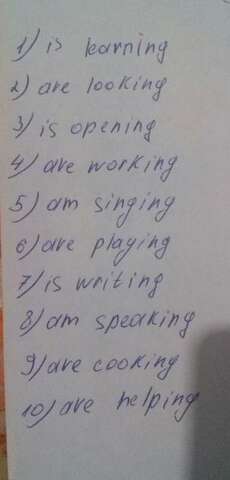 1) is learning
2) are looking
3) is opening
4) are working
5) am singing
6) are playing
7) is writing
8) am speaking
9) are cooking
10) are helping